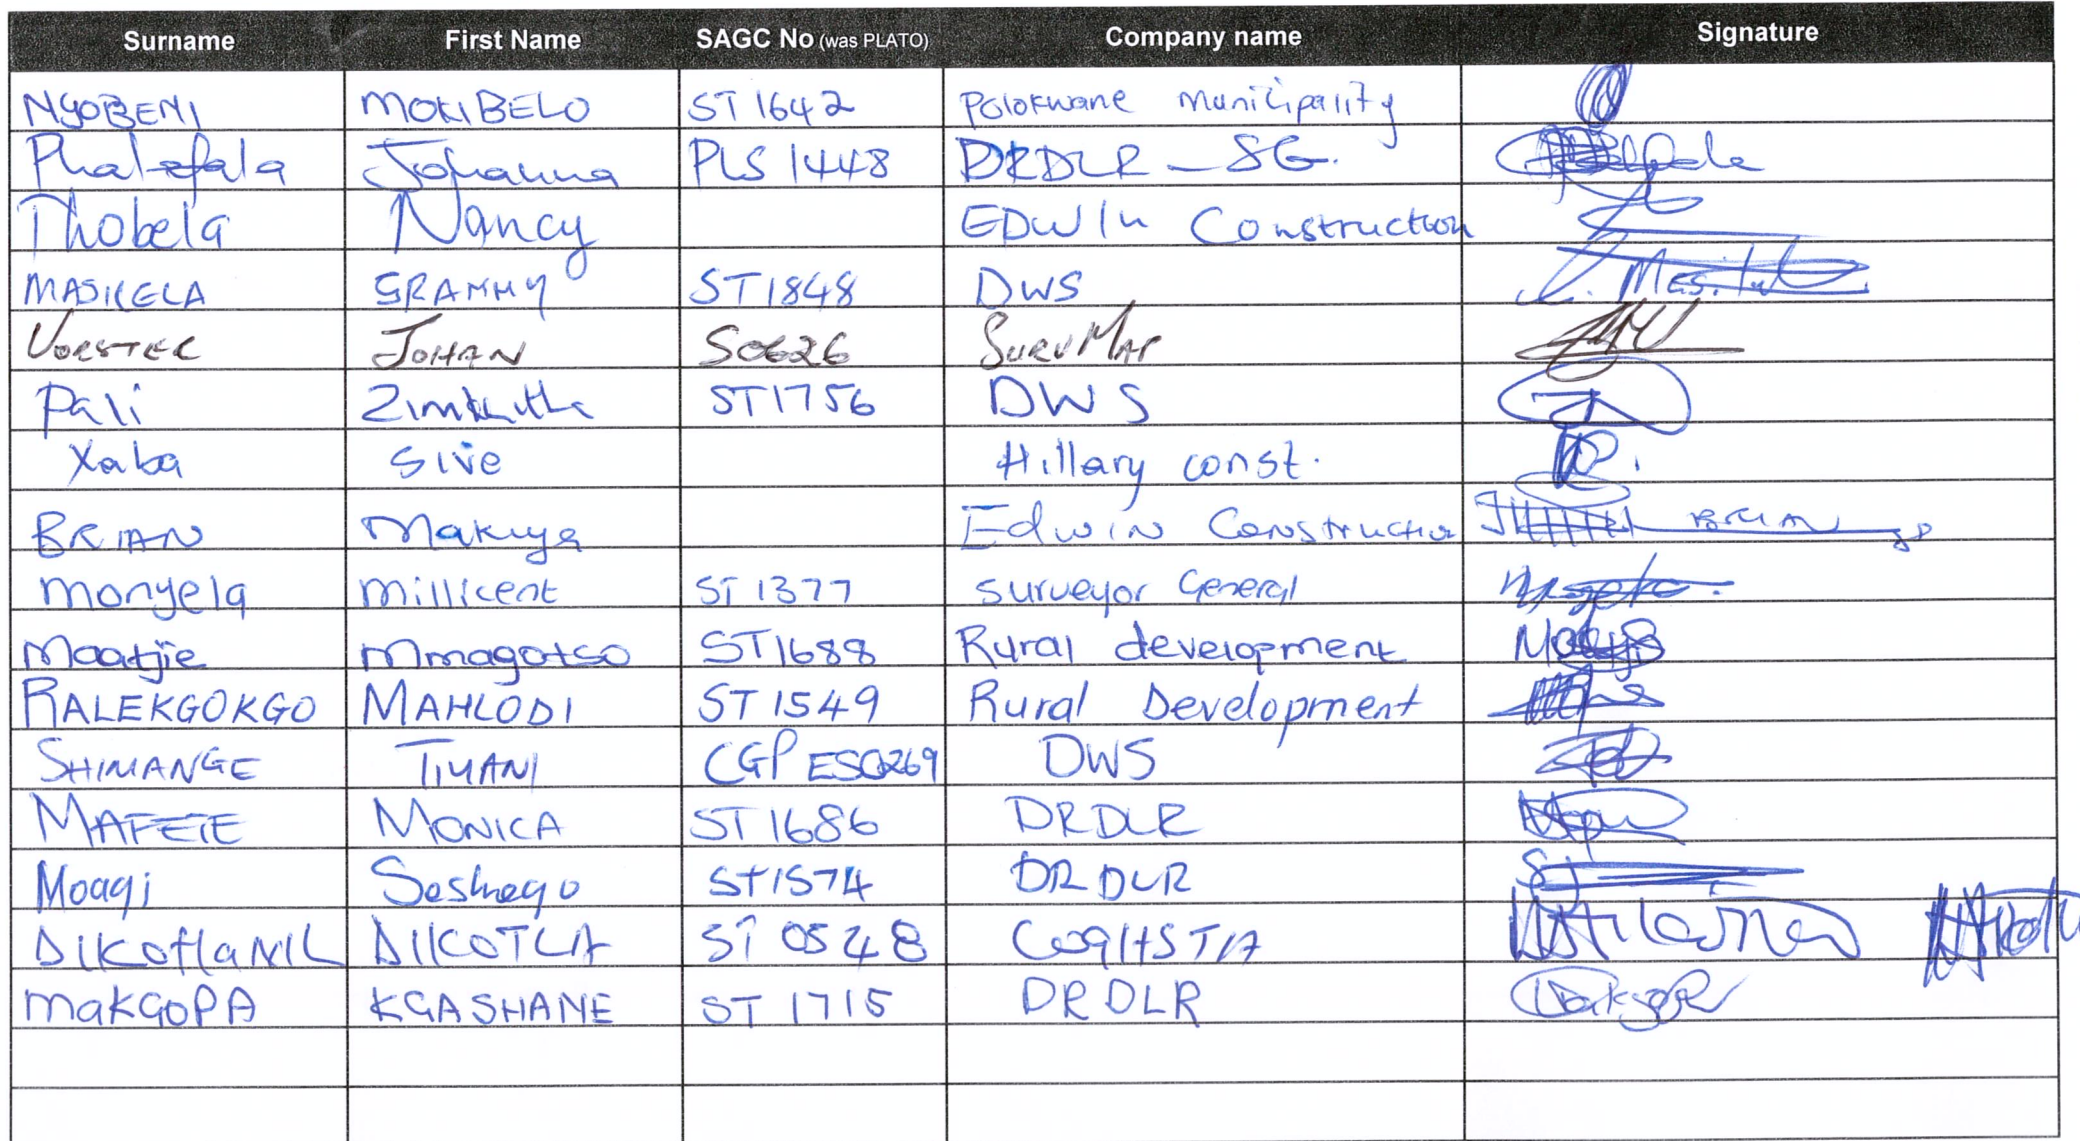 Surname First Name SAGC No (was PLATO) Company name Signature
NYOBENI MOKIBELO ST 1642 Polokwane Municipality
Phalafala Johanna PLS 1448 DRDLR - SG.
Thobela Nancy EDWIN Construction
MASILELA GRAMMY ST1848 DWS
VORSTER JOHAN S0626 SURVMAP
Pali Zimkhitha ST1756 DWS
Xaba Sive Hillary const.
BRIAN Makuya Edwin Constructio BRIAN
Monyela Millicent ST 1377 Surveyor General
Maatjie Mmagotso ST1688 Rural development
RALEKGOKGO MAHLODI ST 1549 Rural Development
SHIMANGE TIYANI CGP ES0269 DWS
MAFETE MONICA ST1686 DRDLR
Moagi Seshego ST1574 DRDLR
DIKOTLA ST 0548 COGHSTA
MAKGOPA KGASHANE ST 1715 DRDLR